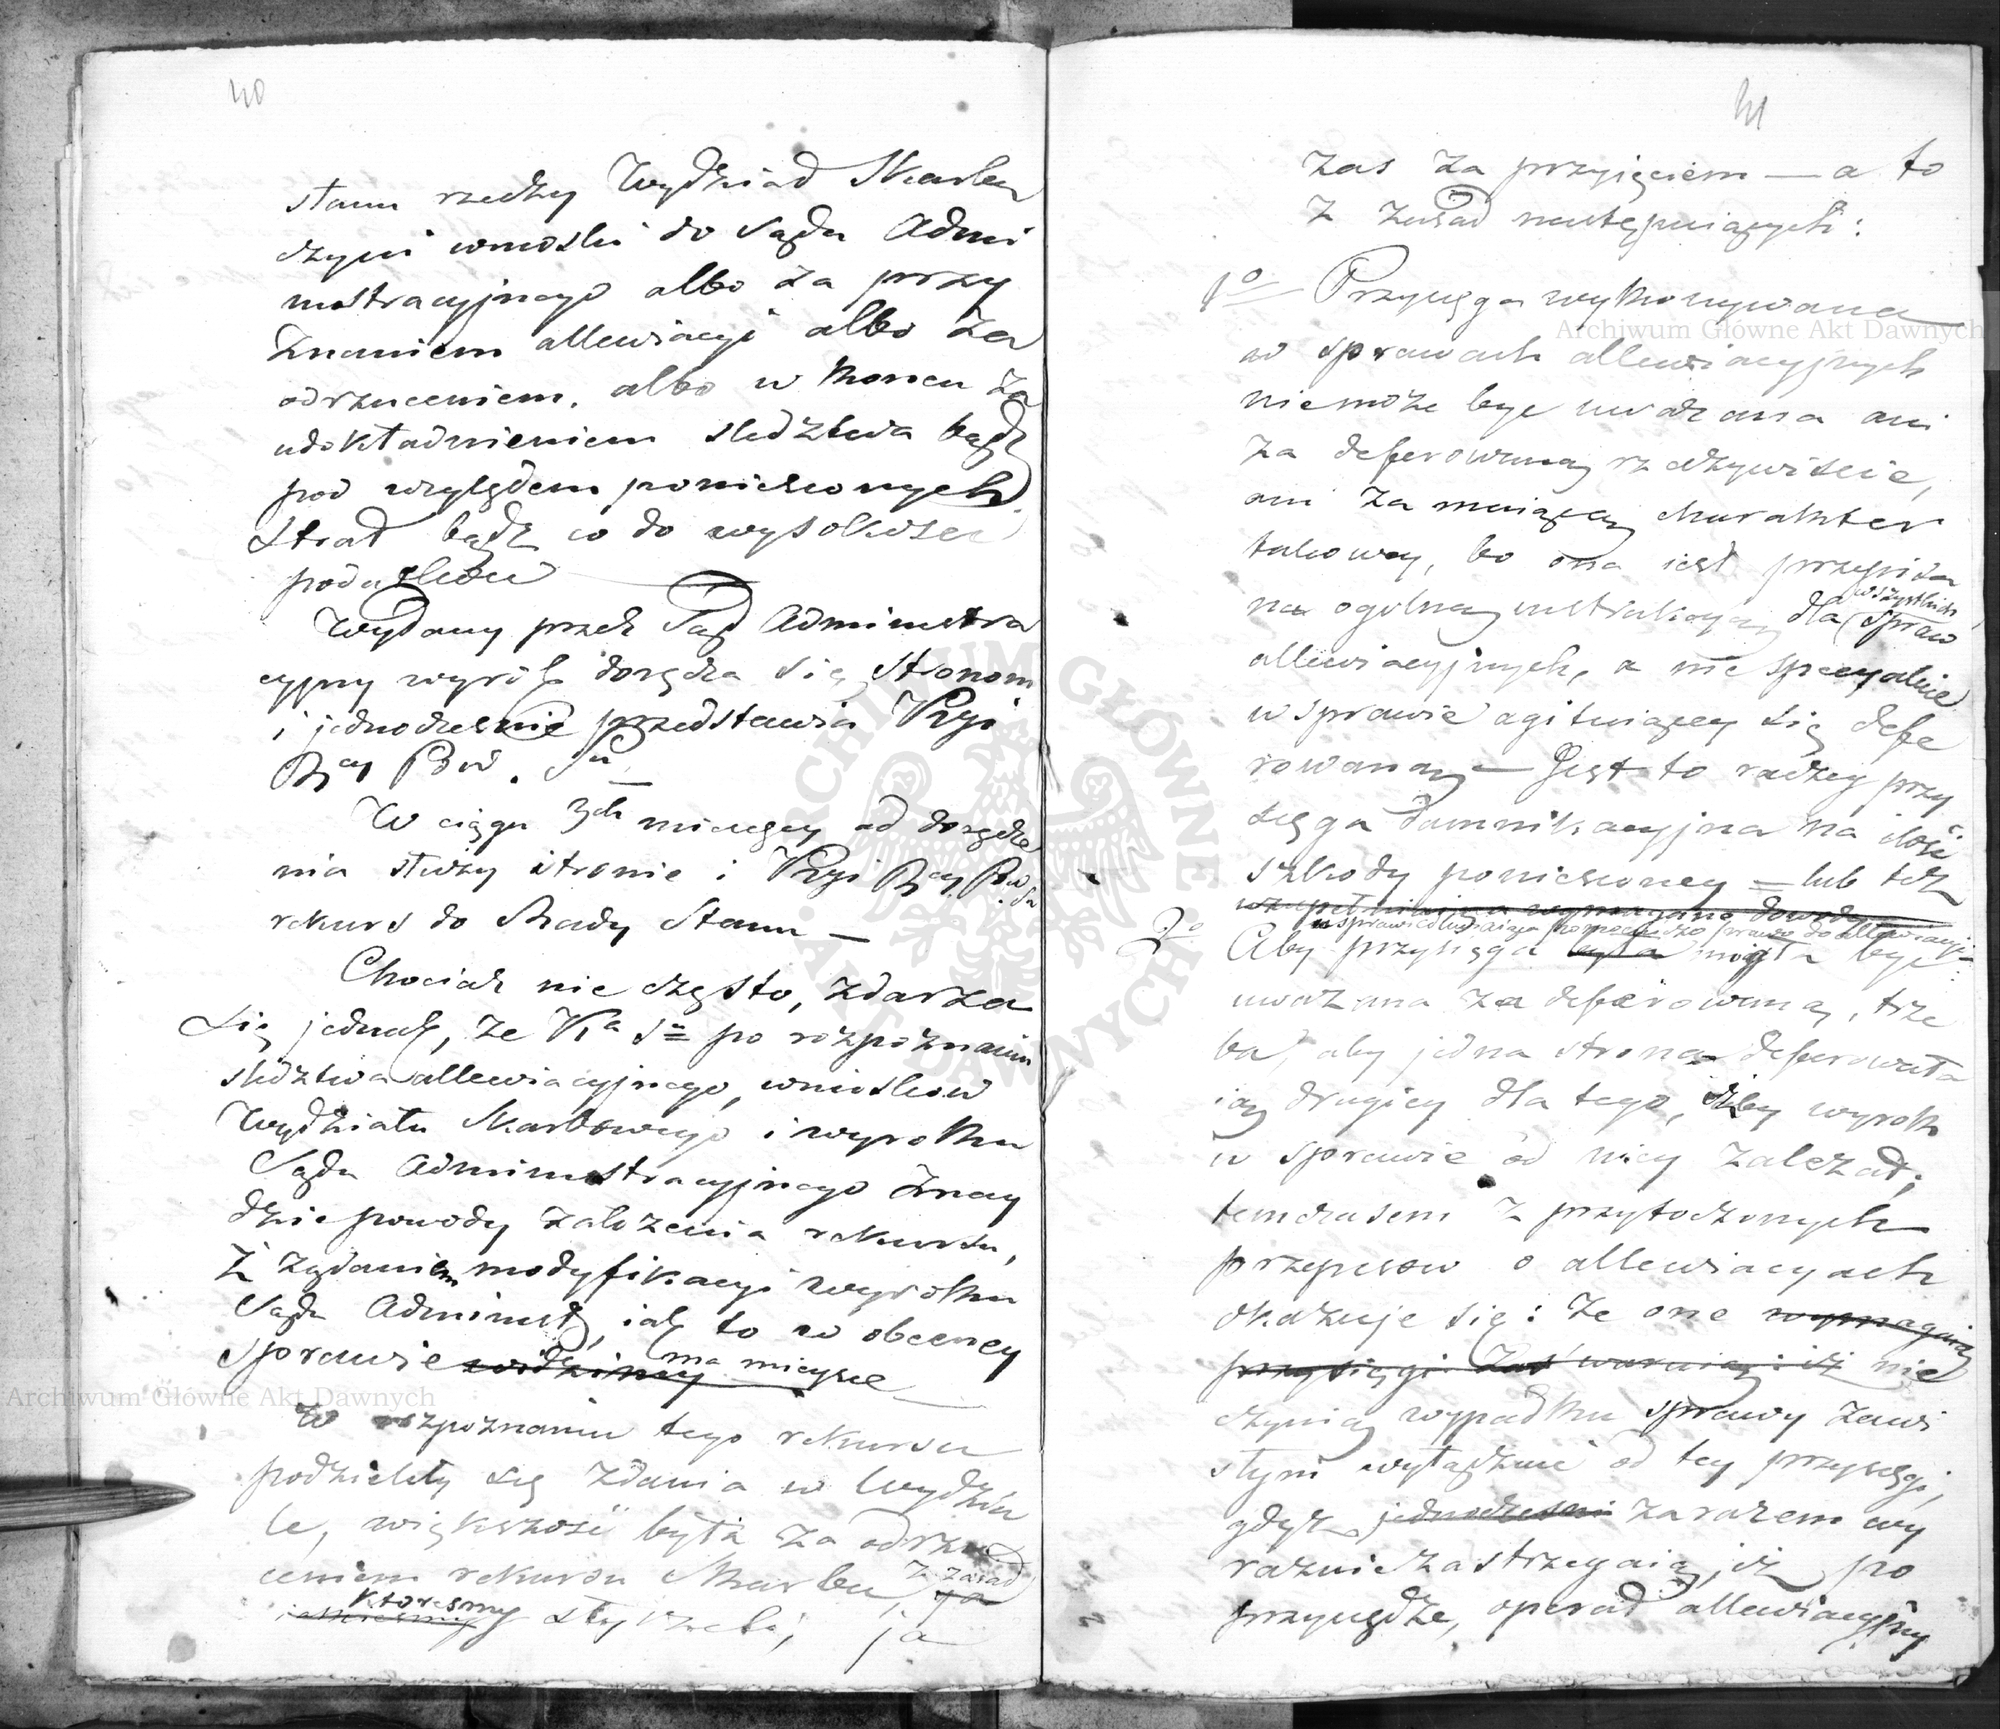 40
stanu rzeczy Wydział Skarbu
czyni wnioski do Sądu Admi
nistracyjnego albo za przy
znaniem allewiacyi albo za
odrzuceniem, albo w koncu za
udokładnieniem sledztwa bądź
pod względem poniesionych
strat bądź co do wysokosci
podatków
Wydany przez Sąd Administra
cyjny wyrok doręcza się stronom
i jednocześnie przedstawia Kyi
Rcy Pow. Su
W ciągu 3ch miesięcy od doręcze
nia służy stronie i Kyi Rcy Pow. Su
rekurs do Rady Stanu —
Chociaż nie często, zdarza
się jednak, że Ka S= po rozpoznaniu
sledztwa allewiacyjnego, wniosków
Wydziału Skarbowego i wyroku
Sądu Administracyjnego znay
dzie powody założenia rekursu,
z żądaniem modyfikacyi wyroku
Sądu Administ, iak to w obecney
sprawie widzimy ma mieysce
W rozpoznaniu tego rekursu
podzieliły się zdania w Wydzia
le, większość była za odrzu
ceniem rekursu Skarbu, z zasad
któresmy słyszeli, ja
41
zas za przyjęciem — a to
z zasad następuiących:
1o Przysięga wykonywana
w sprawach allewiacyjnych
niemoże byc uważana ani
za deferowaną rzeczywiscie,
ani za maiącą charakter
takowey, bo ona iest przepisa
na ogólną instrukcyą dla wszystkich spraw
allewiacyjnych, a nie specyalnie
w sprawie agituiącey się defe
rowaną — Jest to raczey przy
sięga taxacyjna na ilość
szkody poniesioney — lub też
uzupełniaiąca wymagane dowody
usprawiedliwiaiąca prawo do allewiacyi
2o Aby przysięga była mogła byc
uważana za deferowaną, trze
ba, aby jedna strona deferowała
ią drugiey dla tego, żeby wyrok
w sprawie od niey zależał;
tymczasem z przytoczonych
przepisow o allewiacyach
okazuje się: że one wymagaią
przysięgi iż nie
czynią wypadku sprawy zawi
słym wyłącznie od tey przysięgi,
gdyż jednocześnie zarazem wy
raznie zastrzegaią, iż po
przysiędze, operat allewiacyjny
Archiwum Główne Akt Dawnych
Archiwum Główne Akt Dawnych
ARCHIWUM GŁÓWNE AKT DAWNYCH